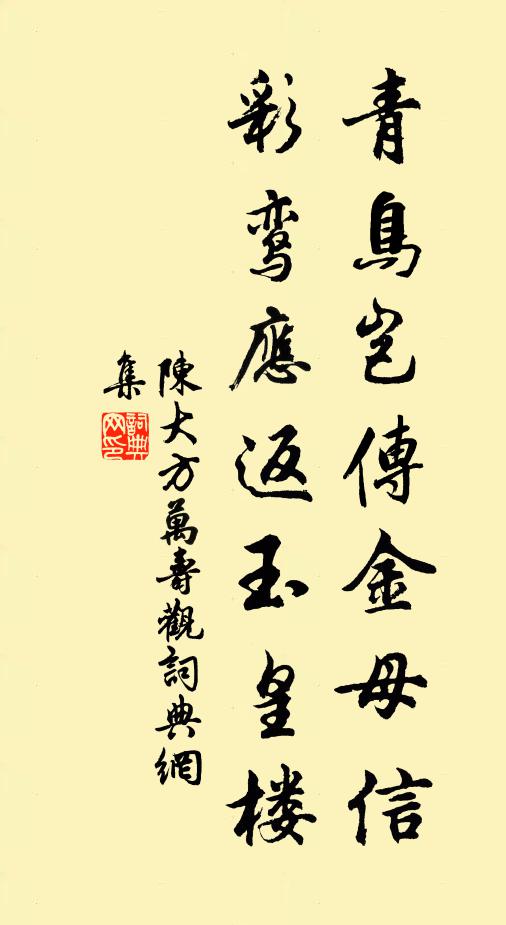 青鳥岂傳金母信
彩鸾應返玉皇楼
陳大方萬壽觀詞典網
集
詞典网印